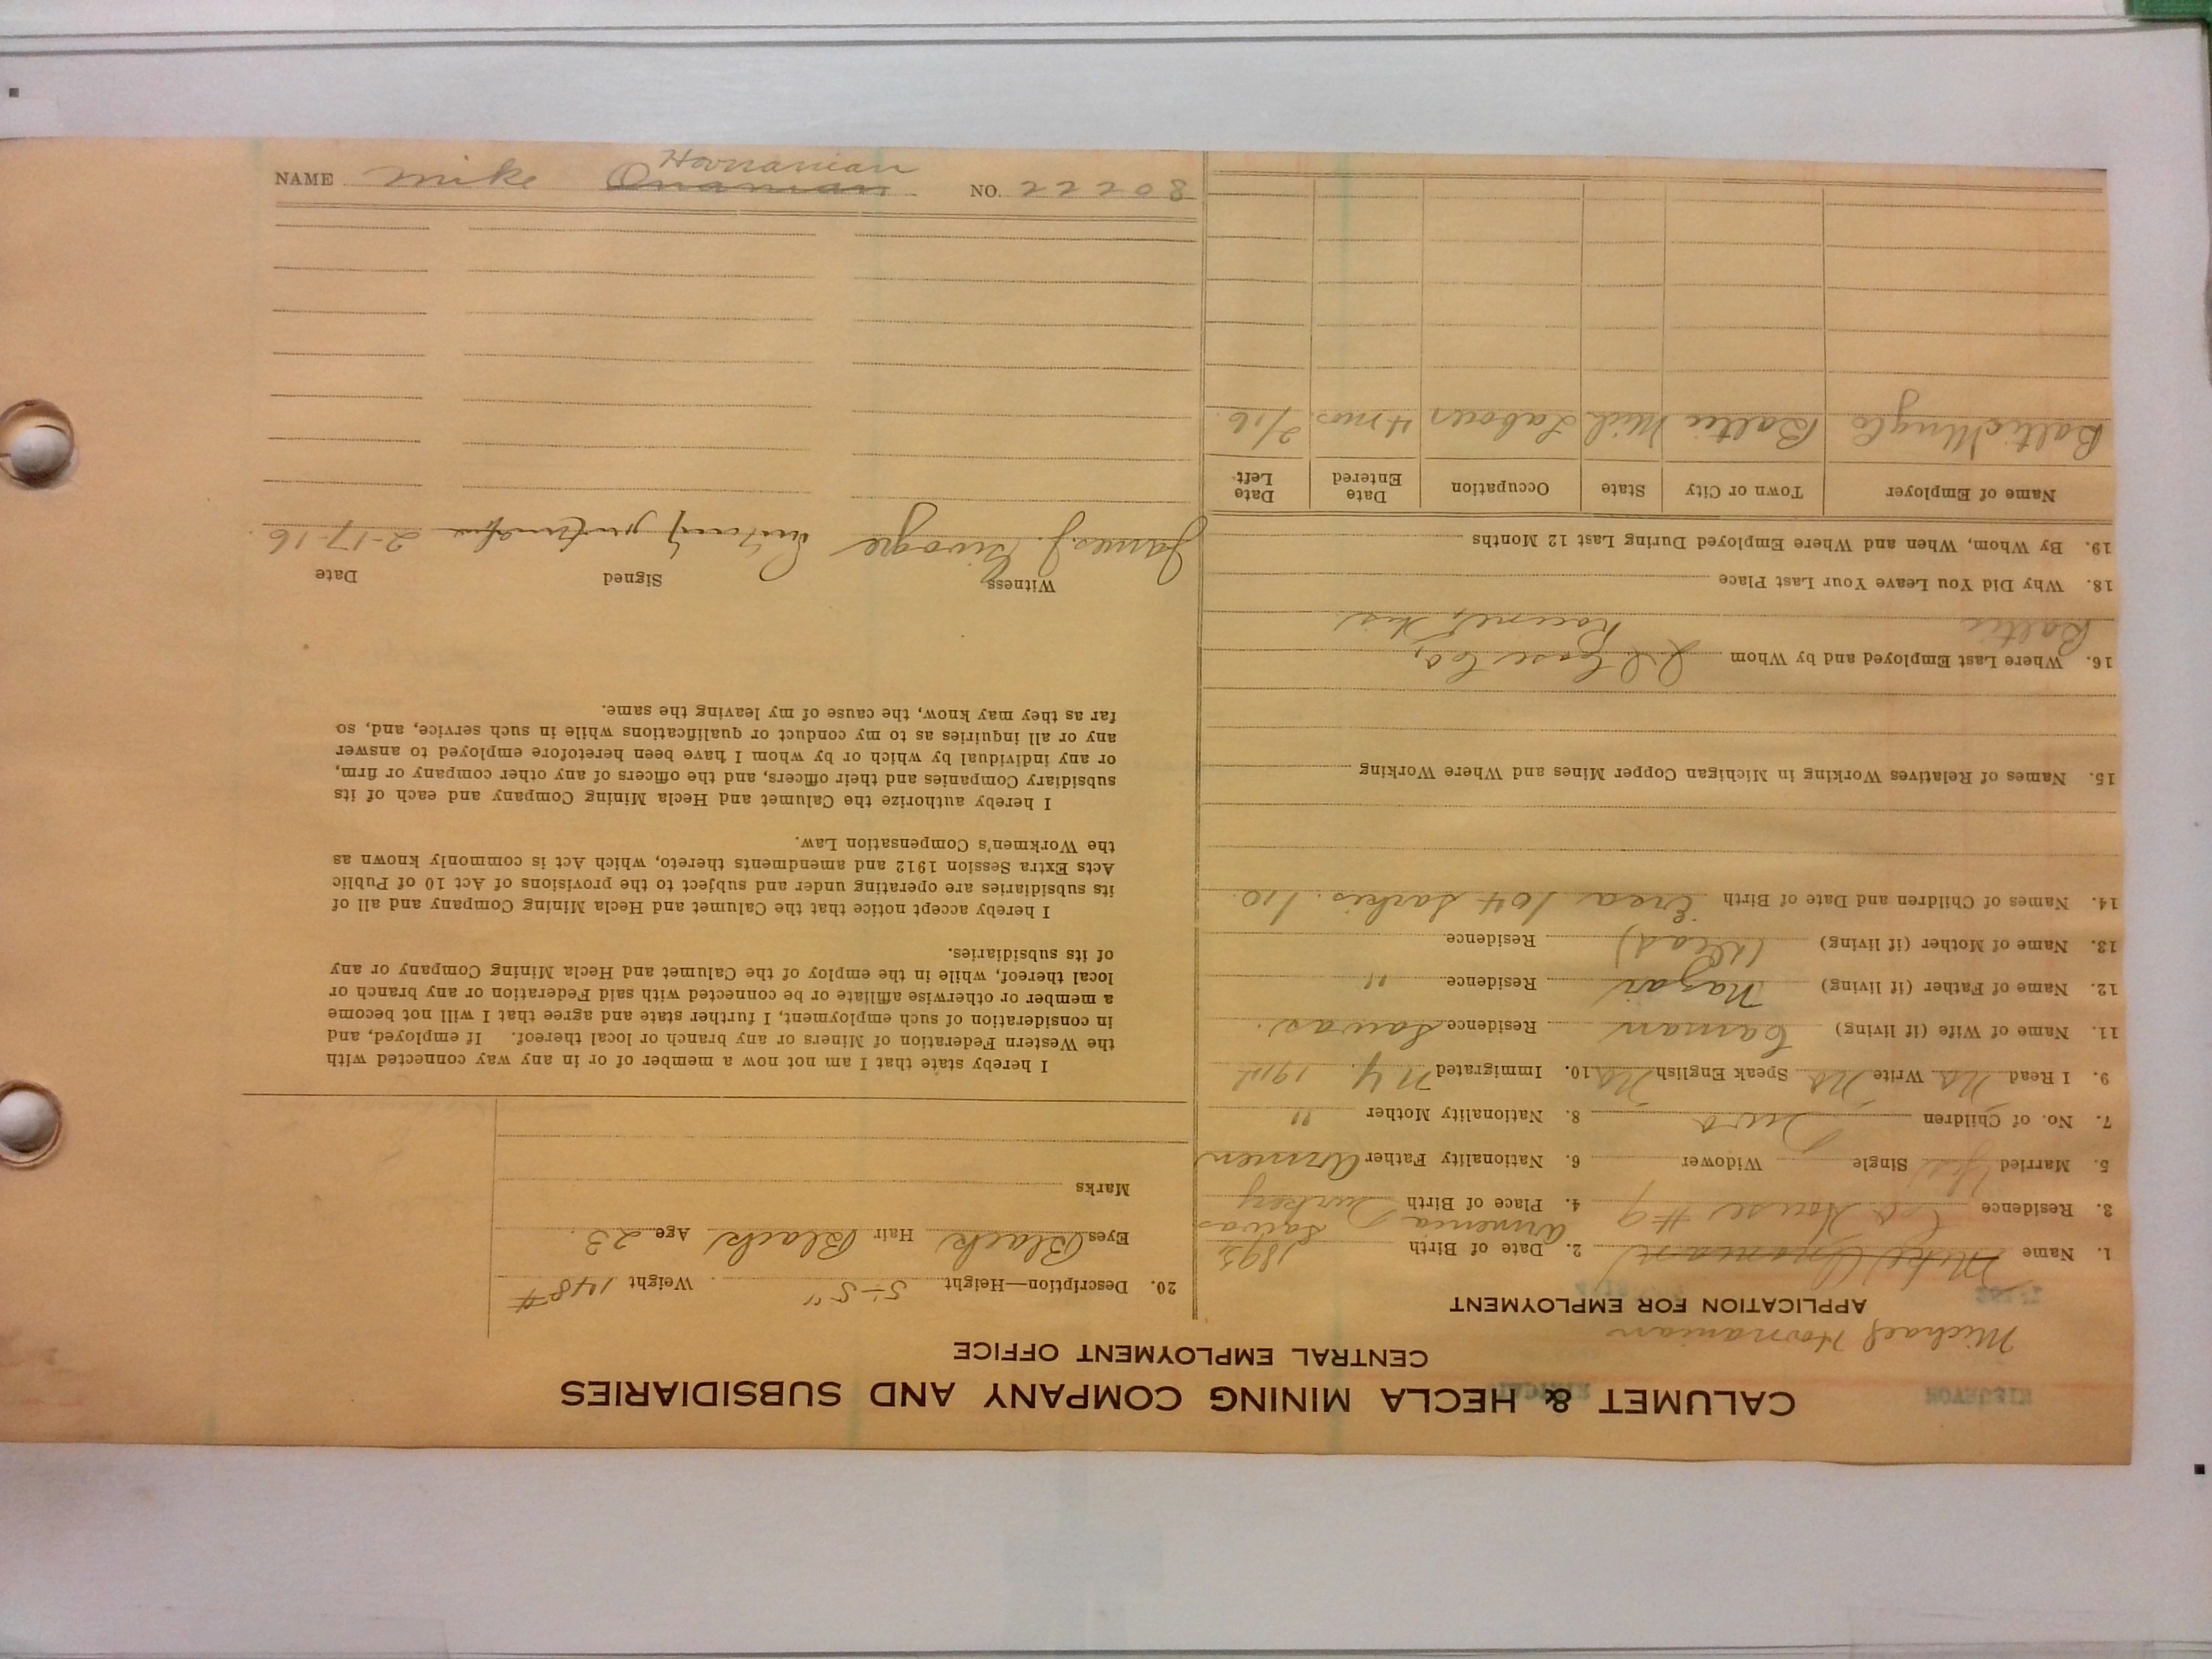 CALUMET & HECLA MINING COMPANY AND SUBSIDIARIES
CENTRAL EMPLOYMENT OFFICE
Michael Hovnanian
APPLICATION FOR EMPLOYMENT
1. Name Mike Onanian 2. Date of Birth 1893
Armenia Sawas
3. Residence Co House #9 4. Place of Birth Turkey
5. Married Yes Single Widower 6. Nationality Father Armen
7. No. of Children Two 8. Nationality Mother "
9. I Read No Write No Speak English No 10. Immigrated N.Y. 1912
11. Name of Wife (if living) Residence Sawas.
12. Name of Father (if living) Nazar Residence "
13. Name of Mother (if living) (Dead) Residence
14. Names of Children and Date of Birth 104 Sarkis. 110.
15. Names of Relatives Working in Michigan Copper Mines and Where Working
16. Where Last Employed and by Whom Case Co,
Baltic
18. Why Did You Leave Your Last Place
19. By Whom, When and Where Employed During Last 12 Months
Name of Employer Town or City State Occupation Date Entered Date Left
Baltic Mng Co Baltic Mich Labour 4 mos. 2/16
20. Description—Height 5-5" Weight 148#
Eyes Black Hair Black Age 23.
Marks
I hereby state that I am not now a member of or in any way connected with
the Western Federation of Miners or any branch or local thereof. If employed, and
in consideration of such employment, I further state and agree that I will not become
a member or otherwise affiliate or be connected with said Federation or any branch or
local thereof, while in the employ of the Calumet and Hecla Mining Company or any
of its subsidiaries.
I hereby accept notice that the Calumet and Hecla Mining Company and all of
its subsidiaries are operating under and subject to the provisions of Act 10 of Public
Acts Extra Session 1912 and amendments thereto, which Act is commonly known as
the Workmen's Compensation Law.
I hereby authorize the Calumet and Hecla Mining Company and each of its
subsidiary Companies and their officers, and the officers of any other company or firm,
or any individual by which or by whom I have been heretofore employed to answer
any or all inquiries as to my conduct or qualifications while in such service, and, so
far as they may know, the cause of my leaving the same.
Witness Signed Date
James J. 2-17-16
Hovnanian
NAME Mike Onanian NO. 22208